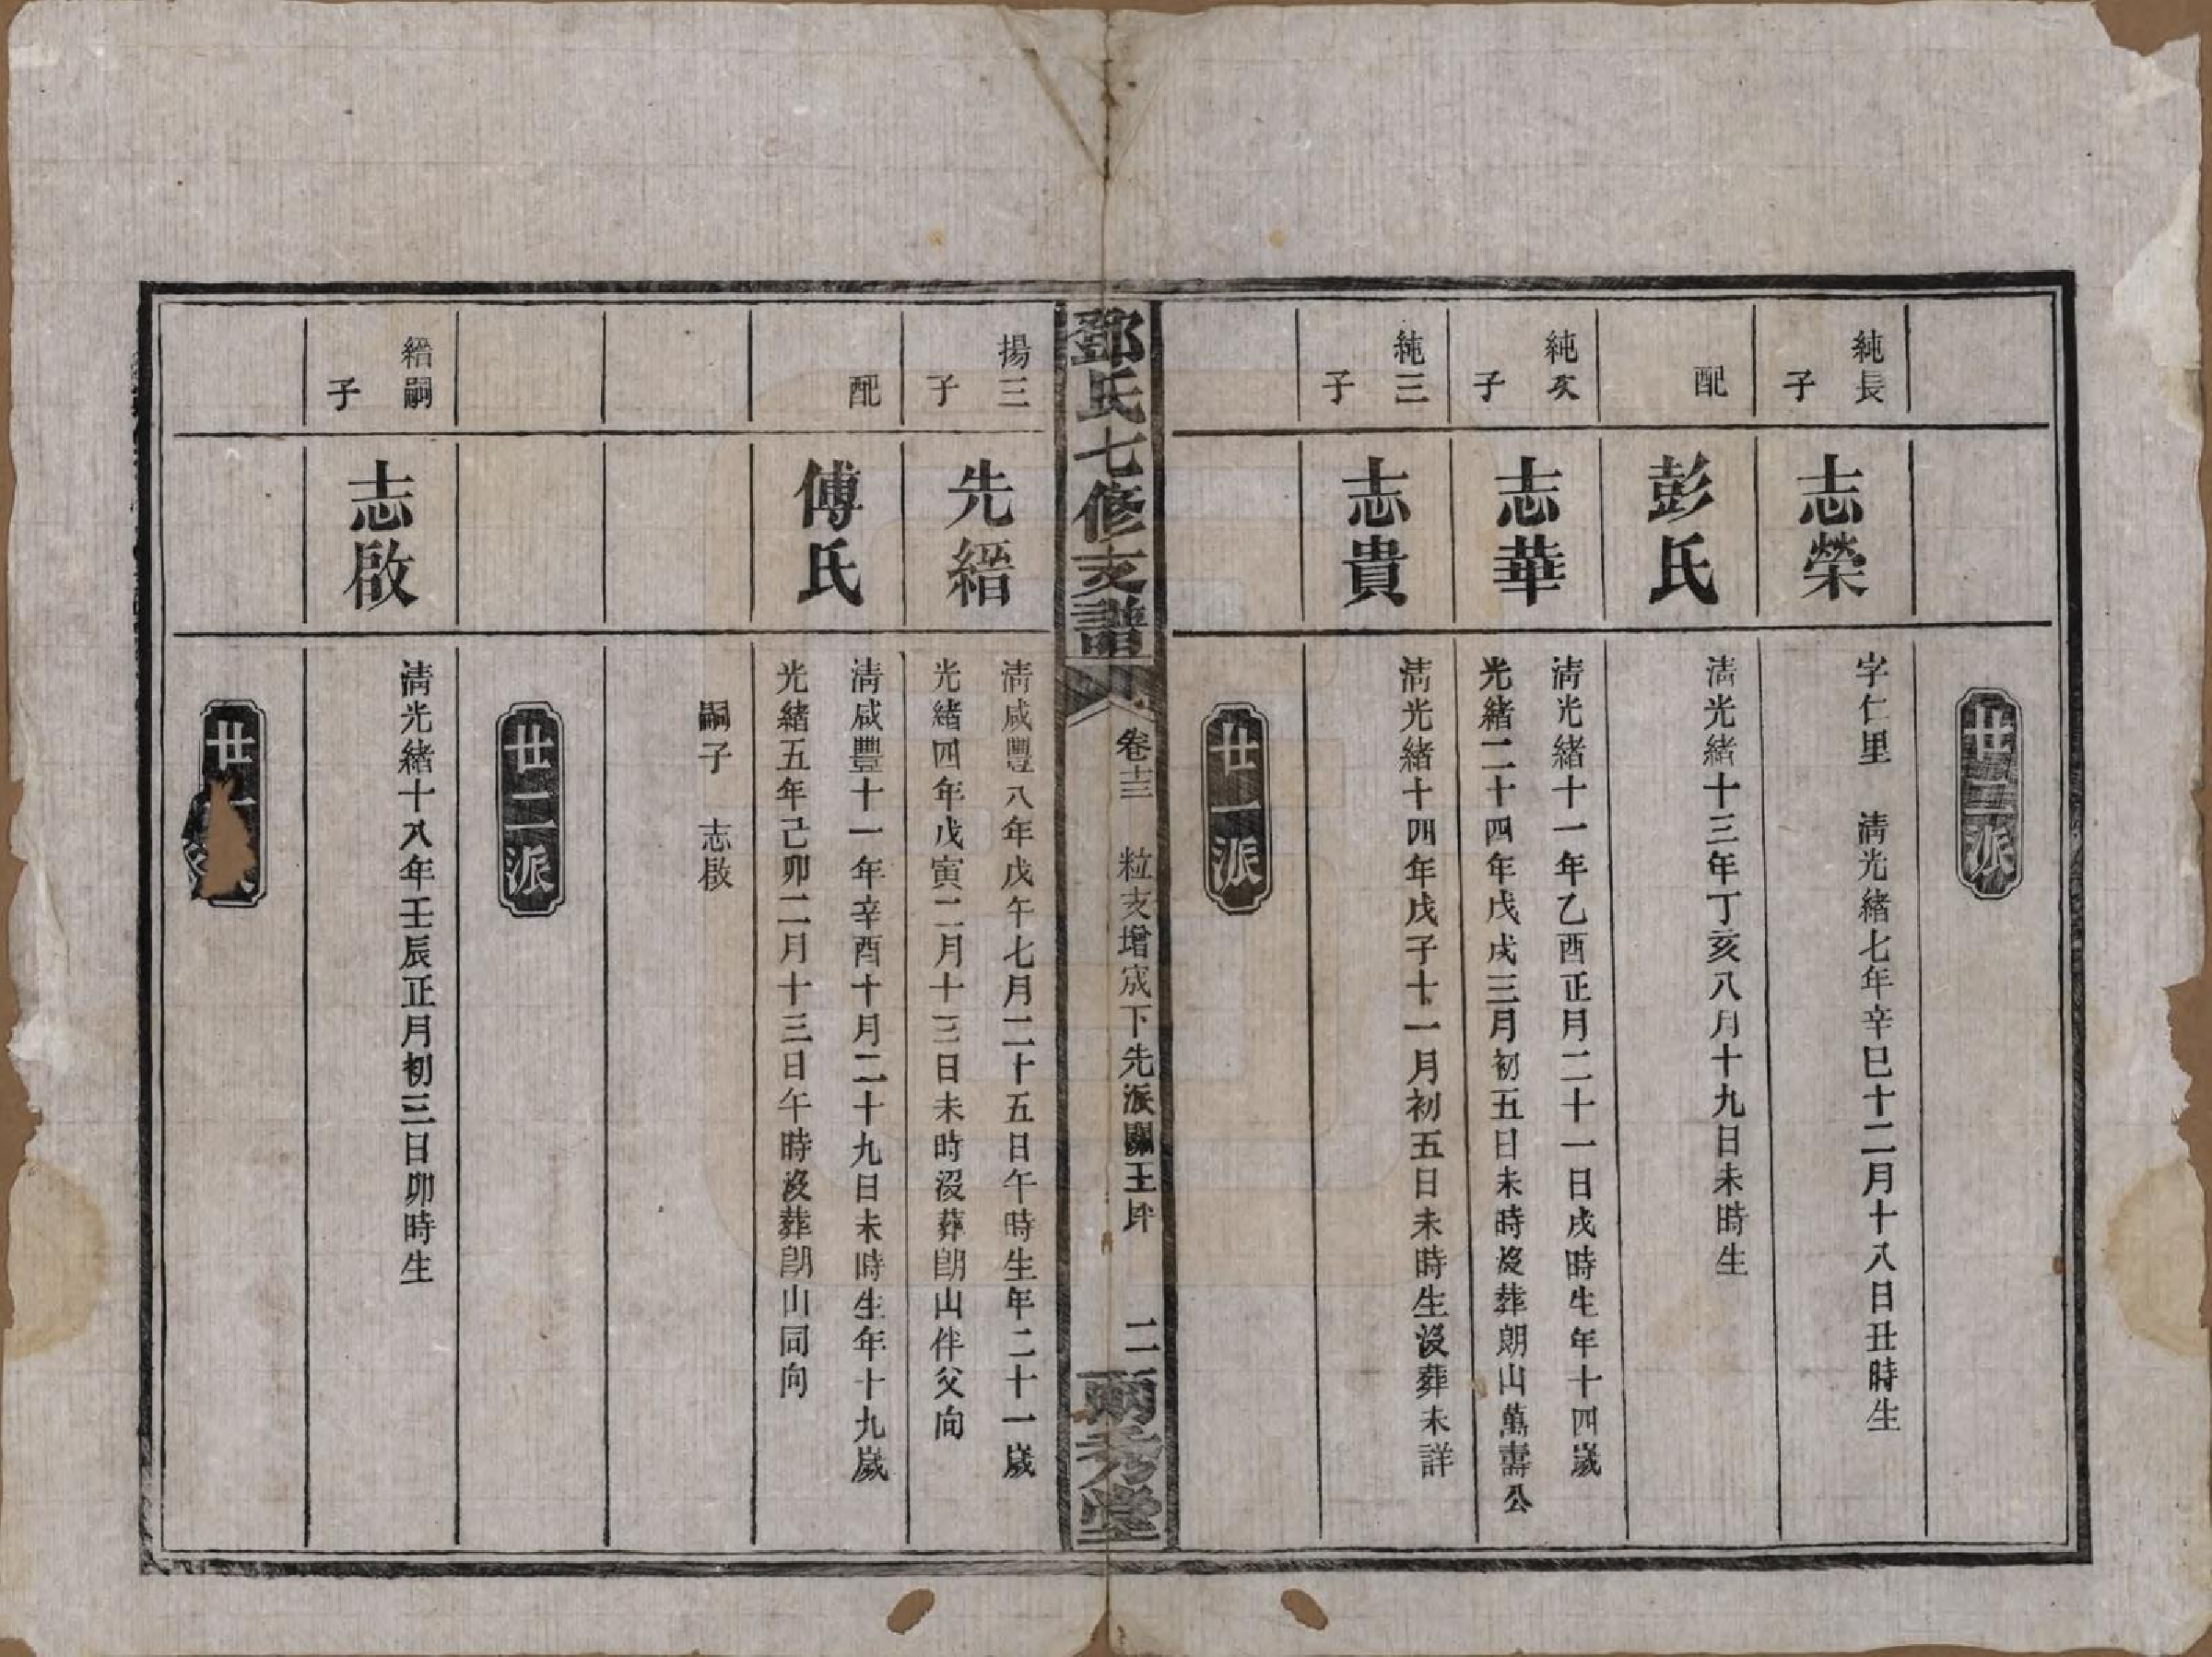 廿二派
純長
子
志榮
字仁里　淸光緒七年辛巳十二月十八日丑時生
配
彭氏
淸光緒十三年丁亥八月十九日未時生
純次
子
志華
淸光緒十一年乙酉正月二十一日戌時生年十四歲
光緒二十四年戊戌三月初五日未時沒葬朗山萬壽公
純三
子
志貴
淸光緒十四年戊子十一月初五日未時生沒葬未詳
廿一派
鄧氏七修支譜
卷十三　粒支增宬下先派關王片　二
兩秀堂
揚三
子
先縉
淸咸豐八年戊午七月二十五日午時生年二十一歲
光緒四年戊寅二月十三日未時沒葬朗山伴父向
配
傅氏
淸咸豐十一年辛酉十月二十九日未時生年十九歲
光緒五年己卯二月十三日午時沒葬朗山同向
嗣子　志啟
廿二派
縉嗣
子
志啟
淸光緒十八年壬辰正月初三日卯時生
廿